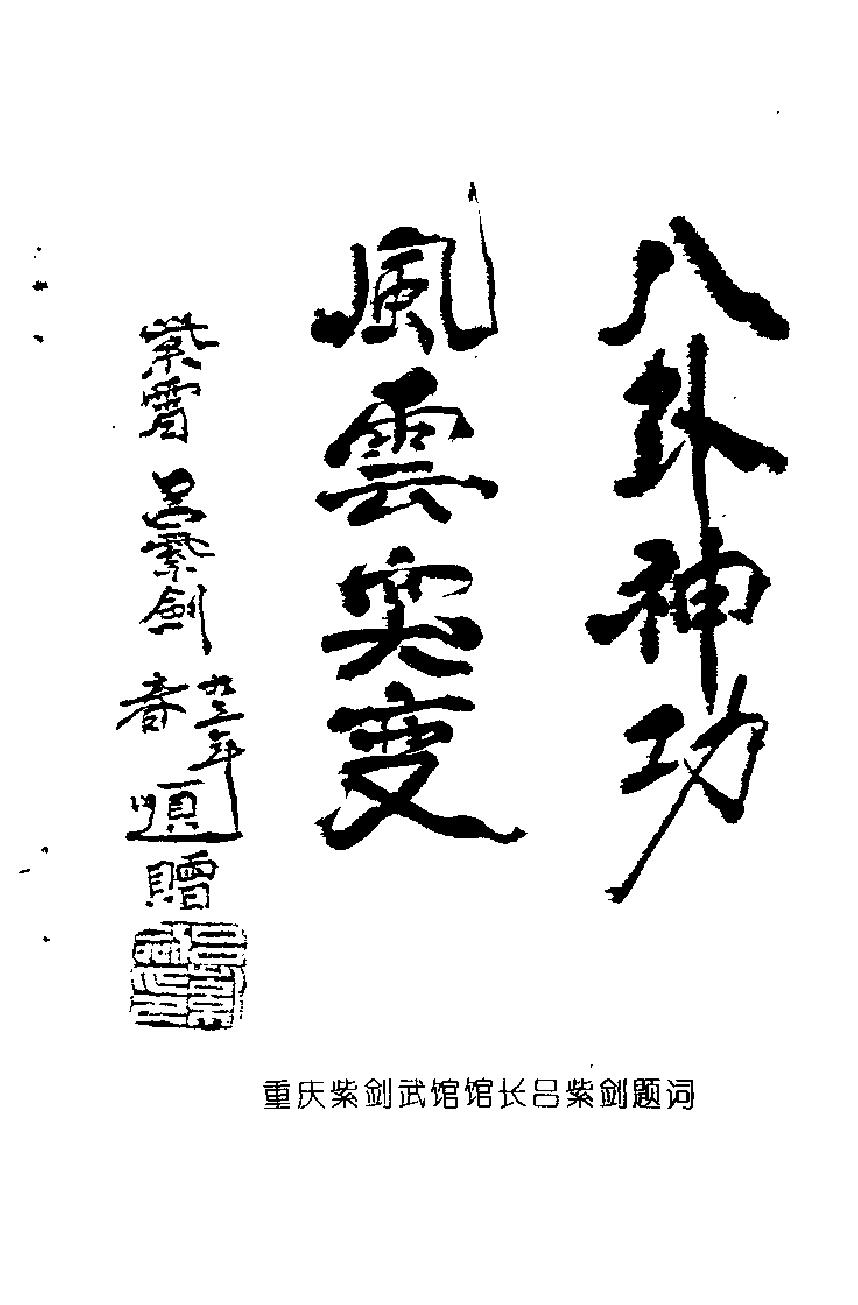 八卦神功
風雲突变
紫霄 吕紫劍
九三年春
題贈
重庆紫剑武馆馆长吕紫剑题词